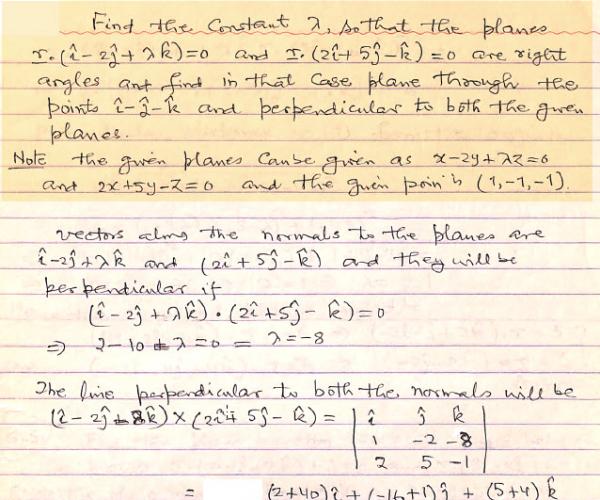 Find the constant λ, so that the planes
r.(î - 2ĵ + λk̂)=0 and r.(2î + 5ĵ - k̂) = 0 are right
angles and find in that case plane through the
points î-ĵ-k̂ and perpendicular to both the given
planes.
Note the given planes can be given as x-2y+λz=0
and 2x+5y-z=0 and the given poin is (1,-1,-1).
vectors along the normals to the planes are
î-2ĵ+λk̂ and (2î + 5ĵ - k̂) and they will be
perpendicular if
(î - 2ĵ + λk̂) • (2î +5ĵ - k̂) = 0
⇒ 2-10 - λ = 0 = λ = -8
The line perpendicular to both the normals will be
(î - 2ĵ - 8k̂) × (2î + 5ĵ - k̂) = | î ĵ k̂ |
| 1 -2 -8 |
| 2 5 -1 |
= (2+40)î + (-16+1)ĵ + (5+4) k̂